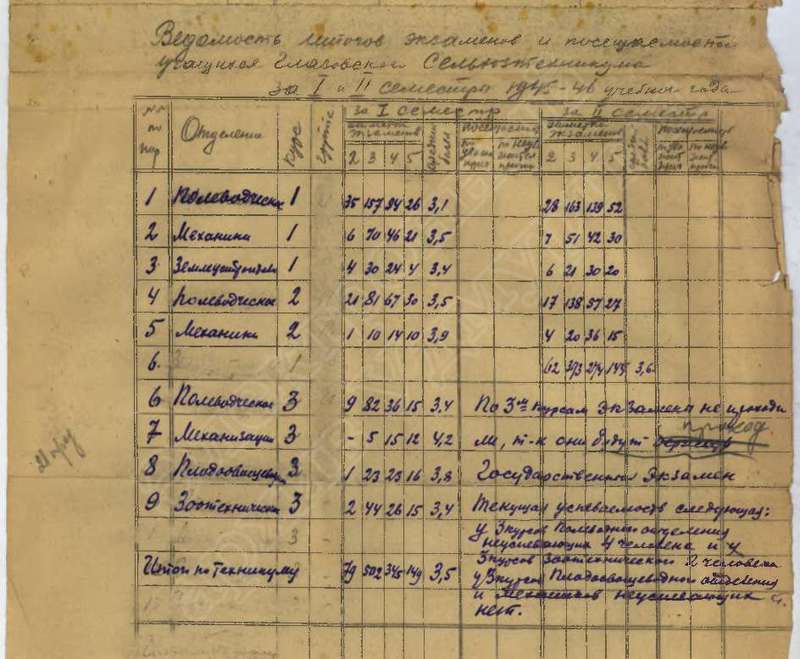 Ведомость итогов экзаменов и посещаемости
учащихся Глазовского Сельхозтехникума
за I и II семестры 1945-46 учебн. года
№№ по пор Отделения Курс Группа за I семестр за II семестр
2 3 4 5 средний балл 2 3 4 5
1 Полеводческое 1 35 157 94 26 3,1 28 163 139 52
2 Механики 1 6 70 46 21 3,5 7 51 42 30
3 Землеустроители 1 4 30 24 4 3,4 6 21 30 20
4 Полеводческое 2 21 81 67 30 3,5 17 138 57 27
5 Механики 2 1 10 14 10 3,9 4 20 36 15
6. 1 62 373 274 145 3,6
6 Полеводческое 3 9 82 36 15 3,4 По 3им курсам Экзамена не проходи
проход
7 Механизации 3 - 5 15 12 4,2 ли, т-к они будут
8 Плодоовощевод 3 1 23 25 16 3,8 Государственный Экзамен
9 Зоотехнически 3 2 44 26 15 3,4 Текущая успеваемость следующая:
3 у 3 курсов Полеводный отделения
неуспевающих 4 человека и у
Итог по техникуму 79 502 345 149 3,5 3 курсов Зоотехнического 2 человека
у 3 курсов Плодоовощеводного отделения
и Механиков неуспевающих
нет.